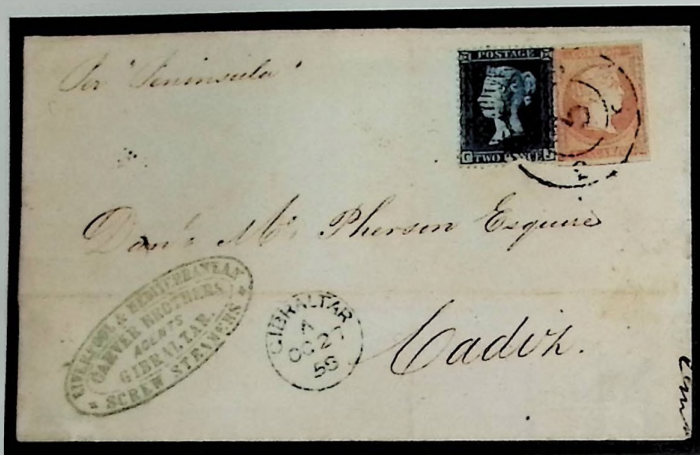 Per "Peninsula"
POSTAGE
C TWO PENCE
5
Danl. Mc. Pherson Esquire
Cadiz.
LIVERPOOL & MEDITERRANEAN
CARVER BROTHERS
AGENTS
GIBRALTAR.
SCREW STEAMERS
GIBRALTAR
7
OC 27
58